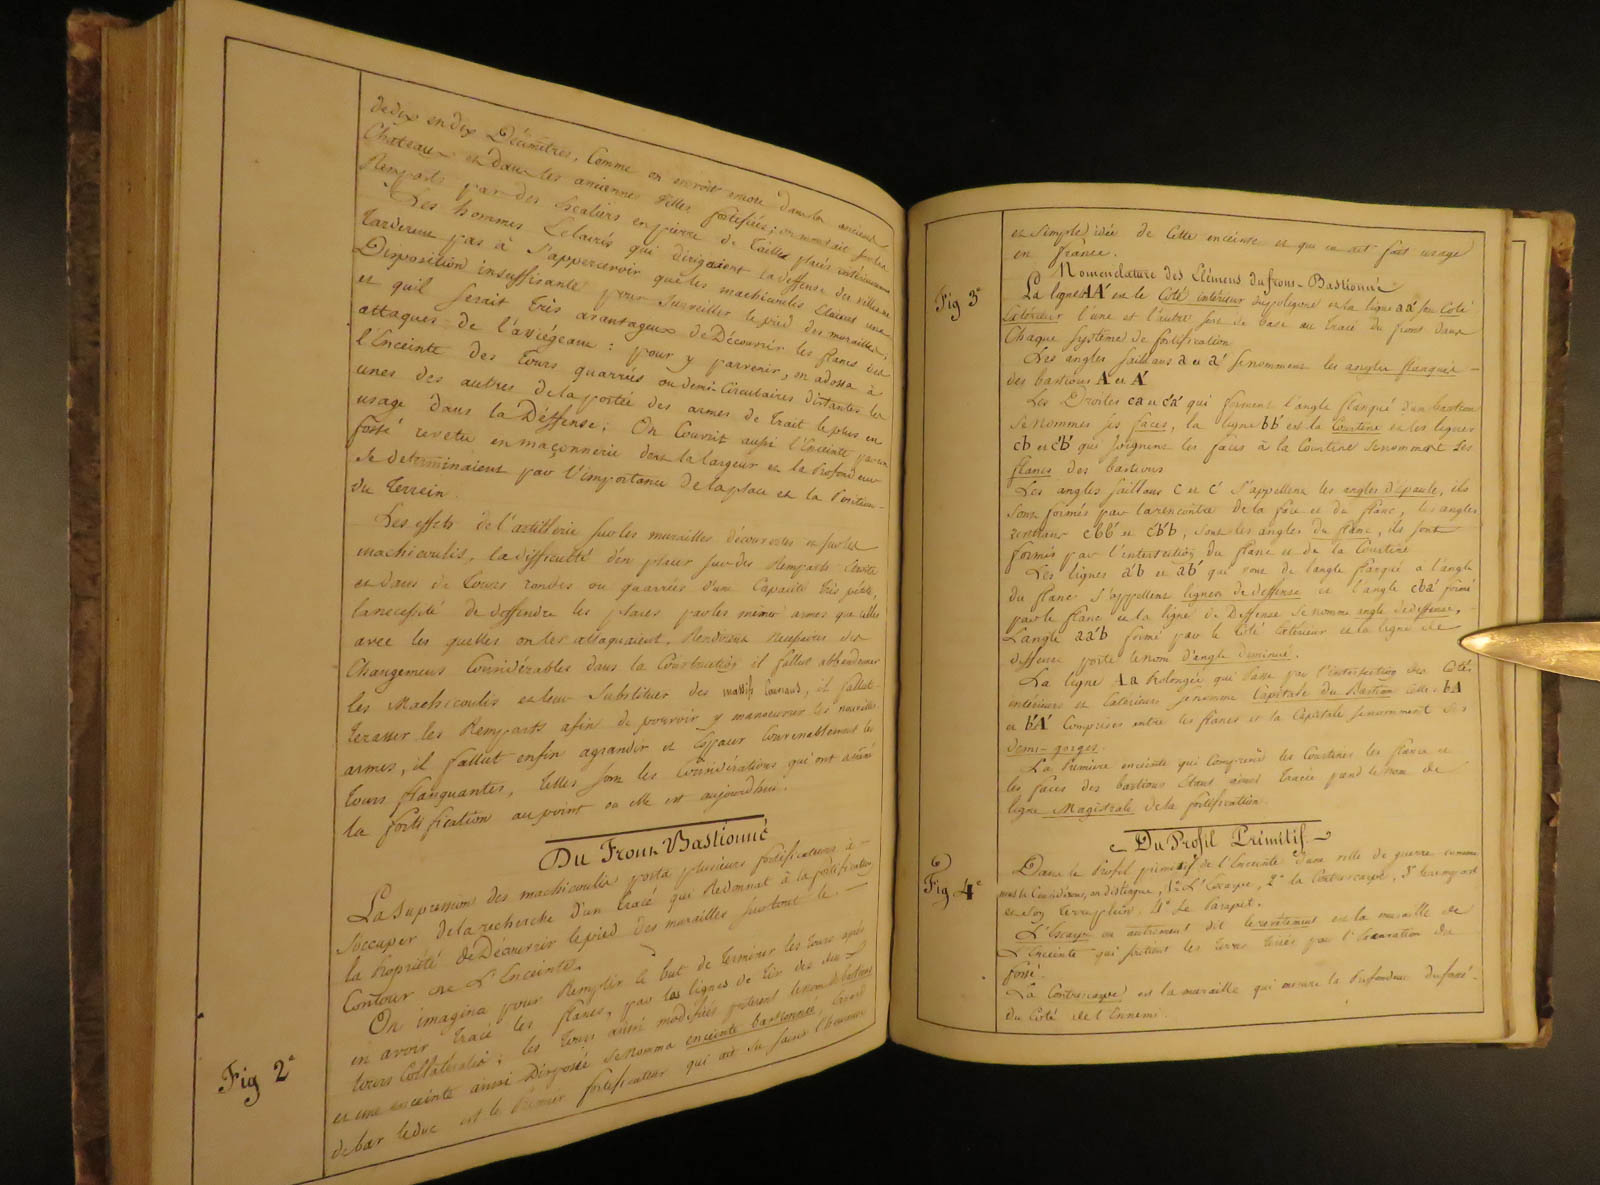 de dix en dix Décimètres, Comme on en voit encore dans les anciens
Chateaux et dans les anciennes Villes fortifiées; on montait sur les
Remparts par des Escaliers en pierre de Taille placés intérieurement
Les hommes Eclairés qui dirigeaient la deffense des villes ne
Tarderent pas à S'appercevoir que les machicoulis Etaient une
Disposition insuffisante pour Surveiller le pied des murailles,
et qu'il serait très avantageux de Découvrir les flancs des
attaques de l'assiégeant : pour y parvenir, on adossa à
l'Enceinte des Tours quarrées ou demi-Circulaires distantes les
unes des autres de la portée des armes de Trait le plus en
usage dans la Déffense; On Couvrit aussi l'Enceinte par un
fossé revetu en maçonnerie dont la largeur et la Profondeur
Se determinaient par l'importance de la place et la Position
du Terrein.
Les effets de l'artillerie sur les murailles découvertes et sur les
machicoulis, la difficulté d'en placer sur des Remparts étroits
et dans de Tours rondes ou quarrées d'une Capacité très petite,
la necessité de deffendre les places par les mêmes armes que celles
avec les quelles on les attaquaient, Rendirent necessaires des
Changemens Considérables dans la Construction il fallut abbandonner
les Machicoulis et leur Substituer des massifs Couvrans, il fallut
terrasser les Remparts afin de pouvoir y manoeuvrer les nouvelles
armes, il fallut enfin agrandir et Espacer Convenablement les
Tours flanquantes, telles sont les Considérations qui ont amené
la fortification au point ou elle est aujourd'hui.
Du Front Bastionné
La Supression des machicoulis porta plusieurs fortificateurs à
S'occuper de la recherche d'un tracé qui Redonnat à la fortification
la Propriété de Découvrir le pied des murailles sur tout le
Contour de L'Enceinte.
On imagina pour Remplir le but de terminer les Tours après
en avoir Tracé les flancs, par les lignes de Tir des deux
Tours Collatérales; les Tours ainsi modifiées prirent le nom de bastions
Fig 2e
et une enceinte ainsi Disposée se nomma enceinte bastionnée,
de bar le duc est le Premier fortificateur qui ait su saisir l'heureuse
et Simple idée de Cette enceinte et qui en ait fait usage
en france.
Nomenclature des Elémens du front-Bastionné
Fig 3e
La ligne AA' est le Coté intérieur du poligone et la ligne aa' son Coté
Extérieur l'une et l'autre sert de base au tracé du front dans
Chaque système de fortification
Les angles saillans a et a' se nomment les angles flanqués
des bastions A et A'
Les Droites ca et c'a' qui forment l'angle flanqué d'un bastion
se nomment ses faces, la ligne bb' est la Courtine et les lignes
cb et c'b' qui joignent les faces à la Courtine se nomment Les
flancs des bastions
Les angles saillans c et c' s'appellent les angles d'épaule, ils
sont formés par la rencontre de la face et du flanc, les angles
rentrans cbb' et c'b'b, sont les angles du flanc, ils sont
formés par l'intersection du flanc et de la Courtine
Les lignes a'b et ab' qui vont de l'angle flanqué a l'angle
du flanc s'appellent lignes de deffense et l'angle cba' formé
par le flanc et la ligne de Deffense se nomme angle de deffense,
L'angle aa'b formé par le Coté Extérieur et la ligne de
deffense porte le nom d'angle Diminué.
La ligne Aa Prolongée qui Passe par l'intersection des Cotés
intérieurs et Extérieurs se nomme Capitale du Bastion celles bA
et b'A' Comprises entre les flancs et la Capitale se nomment des
demi-gorges.
La Première enceinte qui Comprend les Courtines les flancs et
les faces des bastions Etant ainsi tracée prend le nom de
ligne Magistrale de la fortification
Du Profil Primitif
Fig 4e
Dans le Profil primitif de l'Enceinte d'une ville de guerre comme
nous le Considérons, on distingue, 1° L'Escarpe, 2° la Contrescarpe, 3° le rempart
et son terreplein. 4° Le Parapet.
L'Escarpe ou autrement dit le revetement est la muraille de
L'Enceinte qui soutient les terres tirées par l'Excavation du
fossé.
La Contrescarpe est la muraille qui mesure la Profondeur du fossé
du Coté de l'Ennemi.